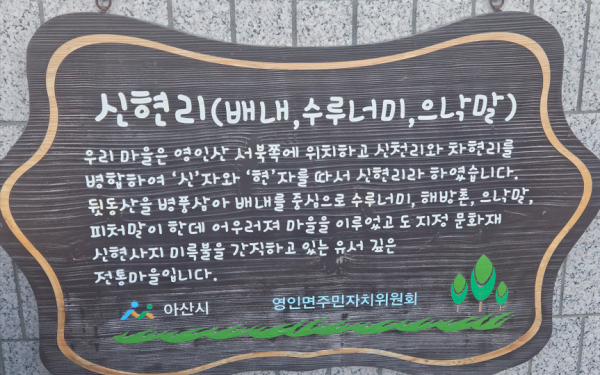 신현리(배내,수루너미,으낙말)
우리 마을은 영인산 서북쪽에 위치하고 신천리와 차현리를
병합하여 '신'자와 '현'자를 따서 신현리라 하였습니다.
뒷동산을 병풍삼아 배내를 중심으로 수루너미, 해방촌, 으낙말,
피처말이 한데 어우러져 마을을 이루었고 도 지정 문화재
신현사지 미륵불을 간직하고 있는 유서 깊은
전통마을입니다.
아산시
영인면주민자치위원회